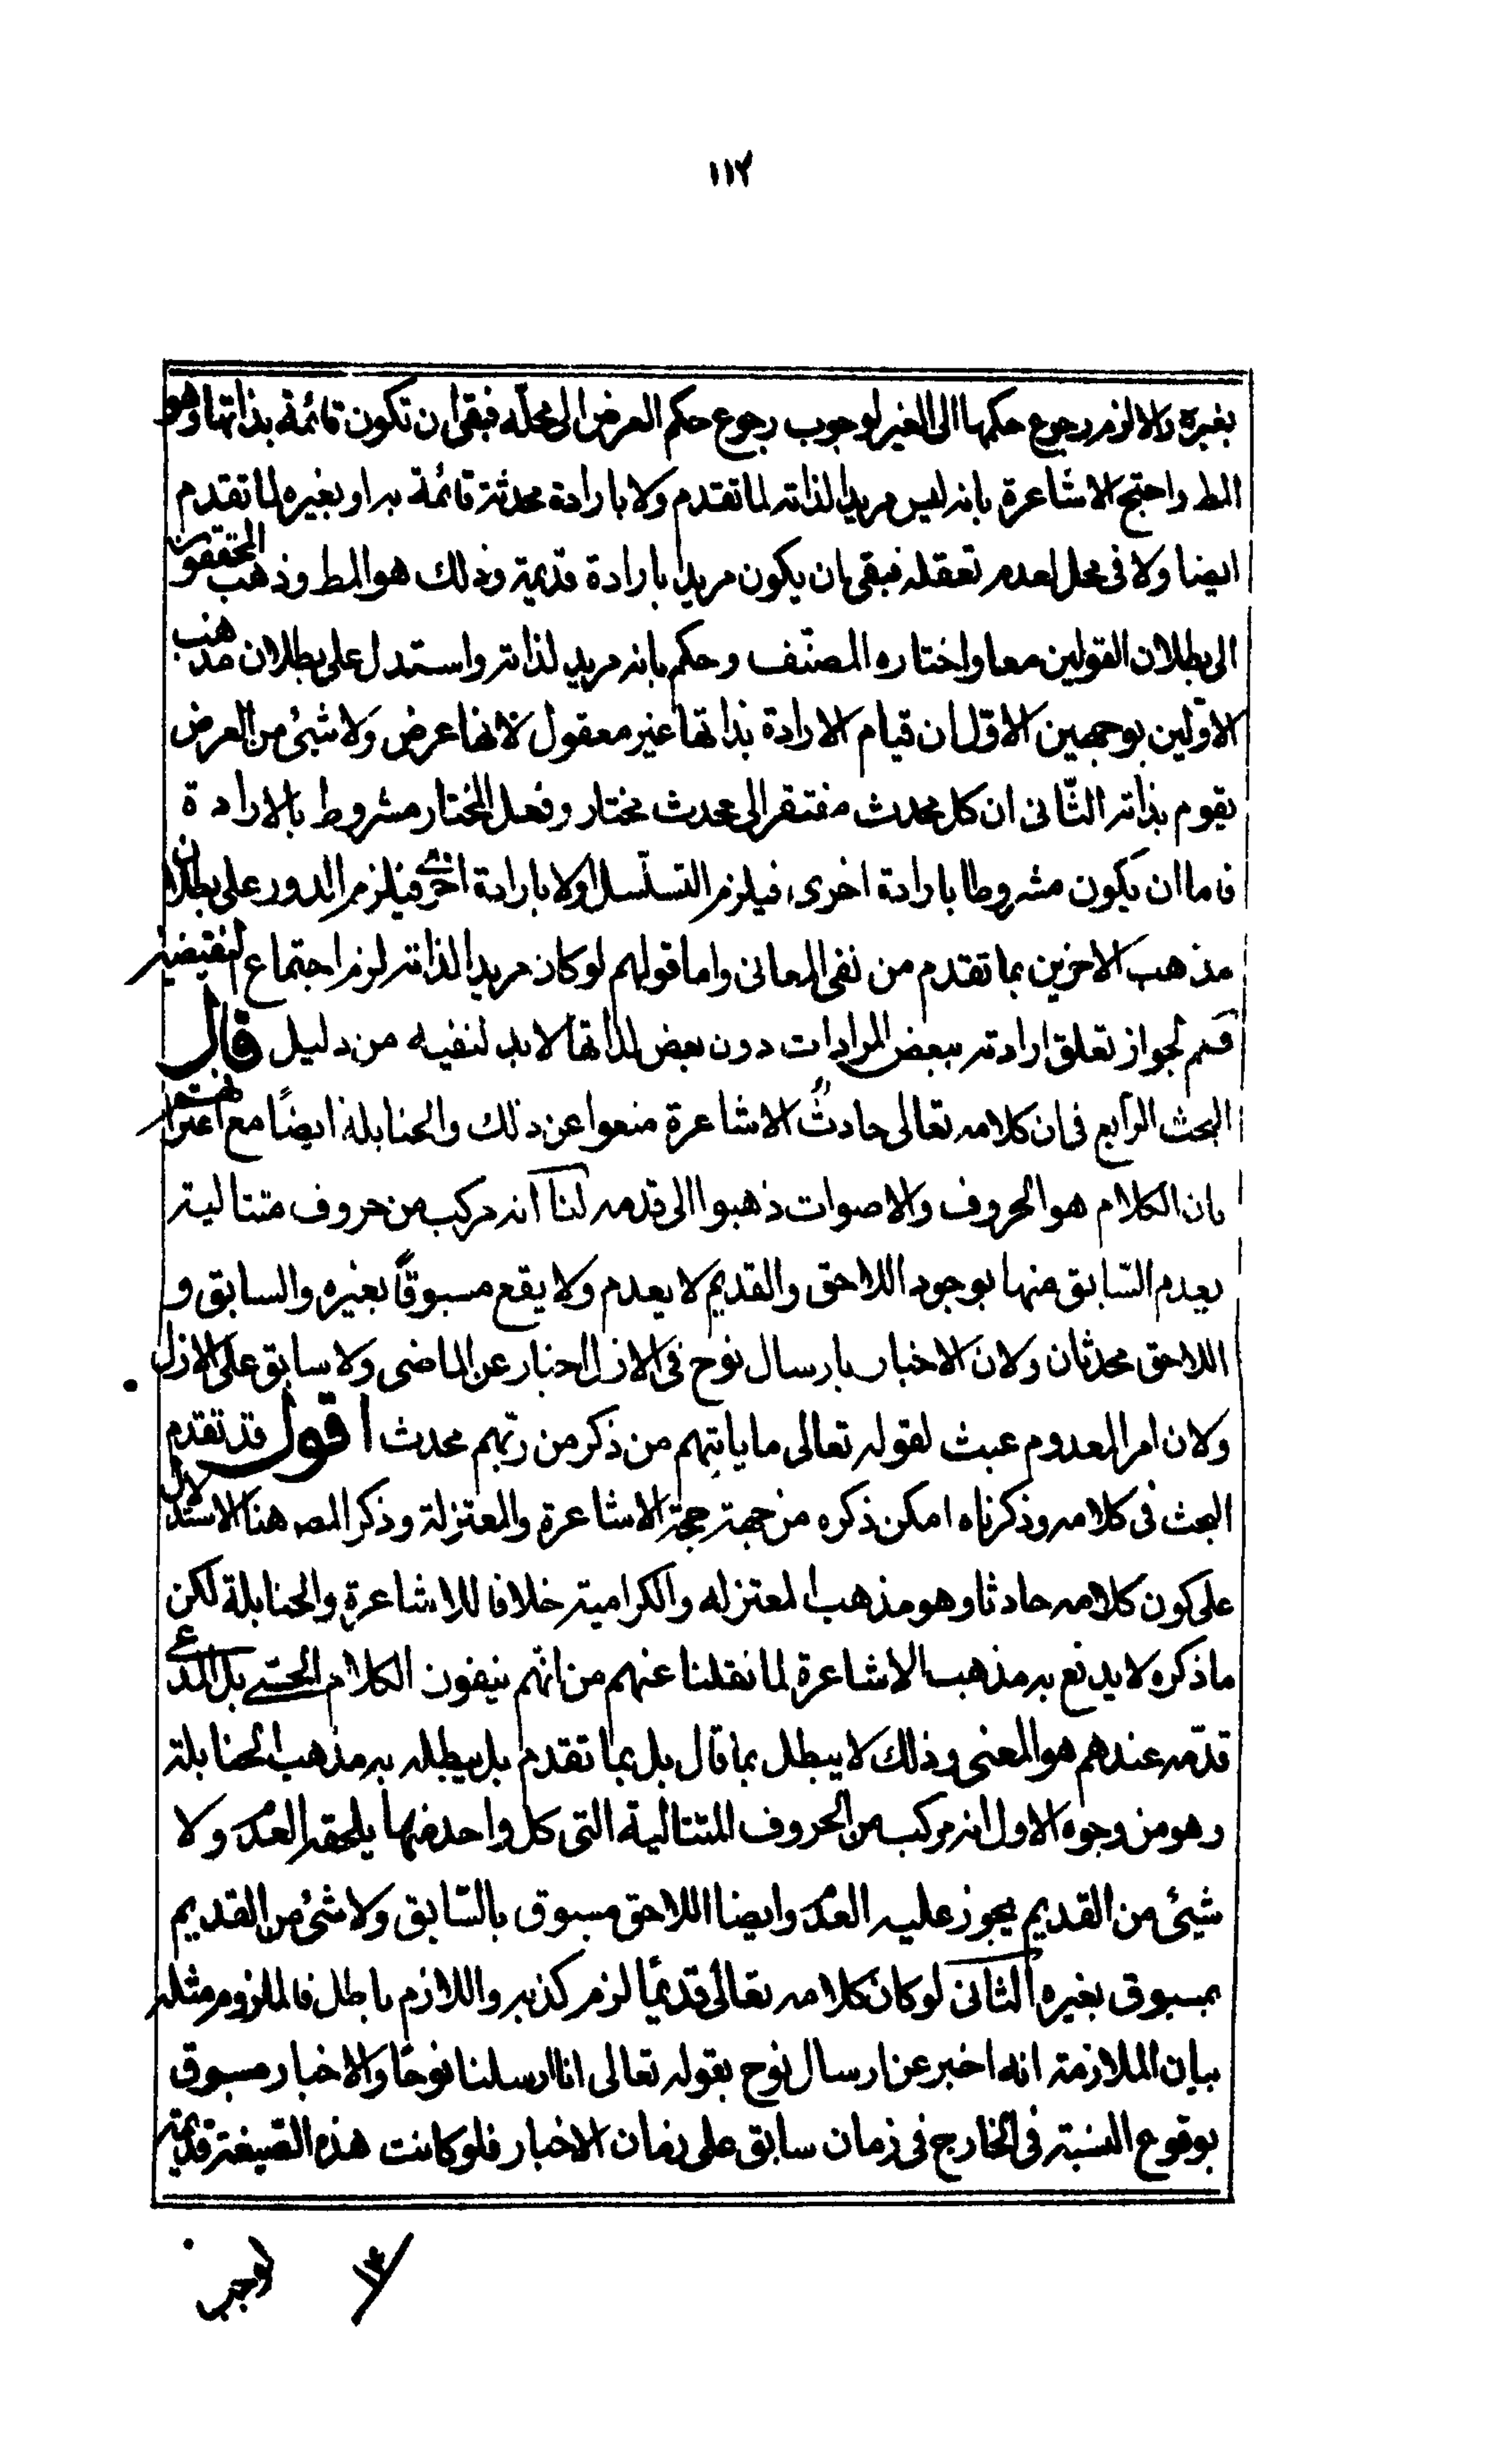 ١١٢
بغيره والا لزم رجوع حكمها الى الغير لوجوب رجوع حكم العرض الى محله فبقى ان تكون قائمة بذاتها وهو
المط واحتج الاشاعرة بانه ليس مريدا لذاته لما تقدم ولا بارادة محدثة قائمة به او بغيره لما تقدم
ايضا ولا فى محل لعدم تعقله فبقى ان يكون مريدا بارادة قديمة وذلك هو المط وذهب المحققون
الى بطلان القولين معا واختاره المصنّف وحكم بانه مريد لذاته واستدل على بطلان مذهب
الاوّلين بوجهين الاوّل ان قيام الارادة بذاتها غير معقول لانها عرض ولا شيئ من العرض
يقوم بذاته الثّانى ان كل محدث مفتقر الى محدث مختار وفعل المختار مشروط بالارادة
فاما ان يكون مشروطا بارادة اخرى فيلزم التسلّسل اولا بارادة اخرى فيلزم الدور على بطلان
مذهب الاخرين بما تقدم من نفى المعانى واما قولهم لو كان مريدا لذاته لزم اجتماع النقيضين
قسم لجواز تعلق ارادته ببعض المرادات دون بعض لذاتها لابد لنفيه من دليل قال
البحث الرّابع فى ان كلامه تعالى حادثٌ الاشاعرة منعوا عن ذلك والحنابلة ايضًا مع اعترافهم
بان الكلام هو الحروف والاصوات ذهبوا الى قدمه لنا انه مركب من حروف متتالية
يعدم السّابق منها بوجود اللاحق والقديم لا يعدم ولا يقع مسبوقًا بغيره والسابق و
اللاحق محدثان ولان الاخبار بارسال نوح فى الازل اخبار عن الماضى ولا سابق على الازل
ولان امر المعدوم عبث لقوله تعالى ما ياتيهم من ذكر من ربّهم محدث اقول قد تقدم
البحث فى كلامه وذكرناه امكن ذكره من جهة حجة الاشاعرة والمعتزلة وذكر المصـ هنا الاستدلال
على كون كلامه حادثا وهو مذهب المعتزله والكرامية خلافا للاشاعرة والحنابلة لكن
ما ذكره لا يدفع به مذهب الاشاعرة لما نقلنا عنهم من انهم ينفون الكلام الحسّى بل المدعى
قدمه عندهم هو المعنى وذلك لا يبطل بما قال بل بما تقدم بل يبطله به مذهب الحنابلة
وهو من وجوه الاول انه مركب من الحروف المتتالية التى كل واحد منها يلحقه العدم ولا
شيئ من القديم يجوز عليه العدم وايضا اللاحق مسبوق بالسّابق ولا شئ من القديم
بمسبوق بغيره الثانى لو كان كلامه تعالى قديمًا لزم كذبه واللازم باطل فالملزوم مثله
بيان الملازمة انه اخبر عن ارسال نوح بقوله تعالى انا ارسلنا نوحًا والاخبار مسبوق
بوقوع النسبة فى الخارج فى زمان سابق على زمان الاخبار فلو كانت هذه الصيغة قديمة
لوجب